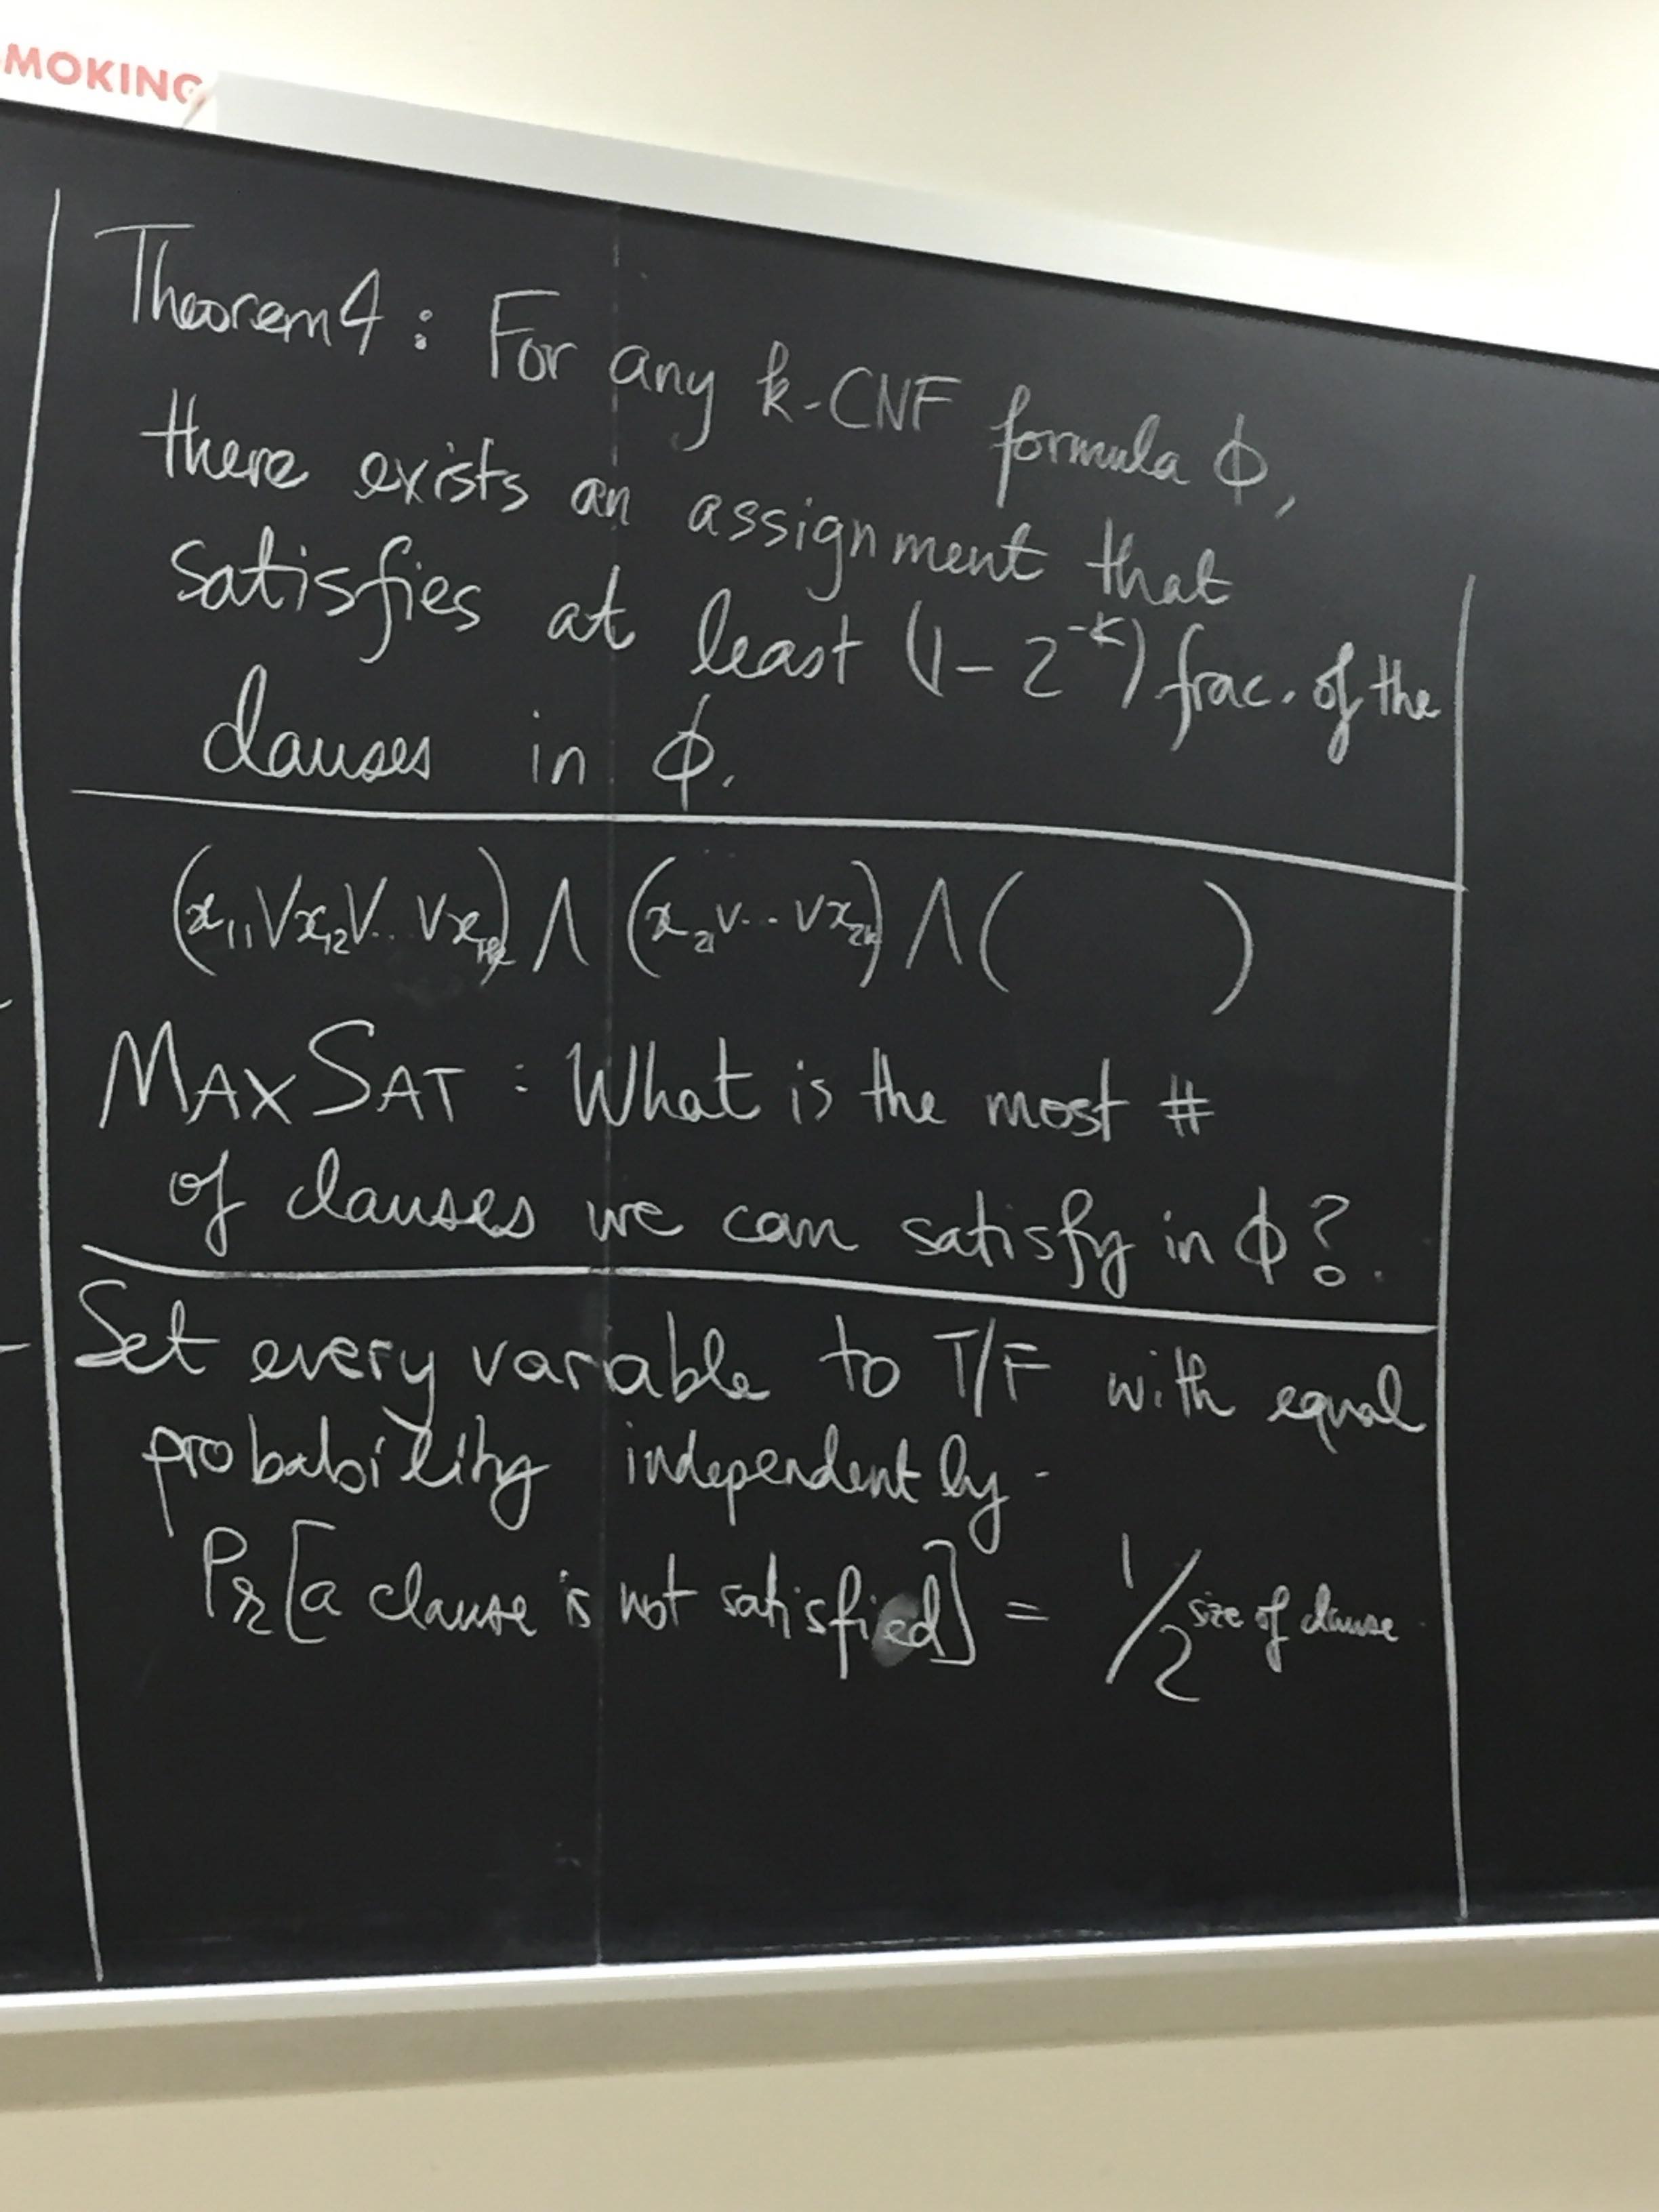 MOKING
Theorem 4: For any k-CNF formula ϕ,
there exists an assignment that
satisfies at least (1-2^-k) frac. of the
clauses in ϕ.
(x₁₁∨x₁₂∨..∨x₁ₖ) ∧ (x₂₁∨...∨x₂ₖ) ∧ ( )
MAXSAT: What is the most #
of clauses we can satisfy in ϕ?
Set every variable to T/F with equal
probability independently.
Pr[a clause is not satisfied] = 1/2^size of clause